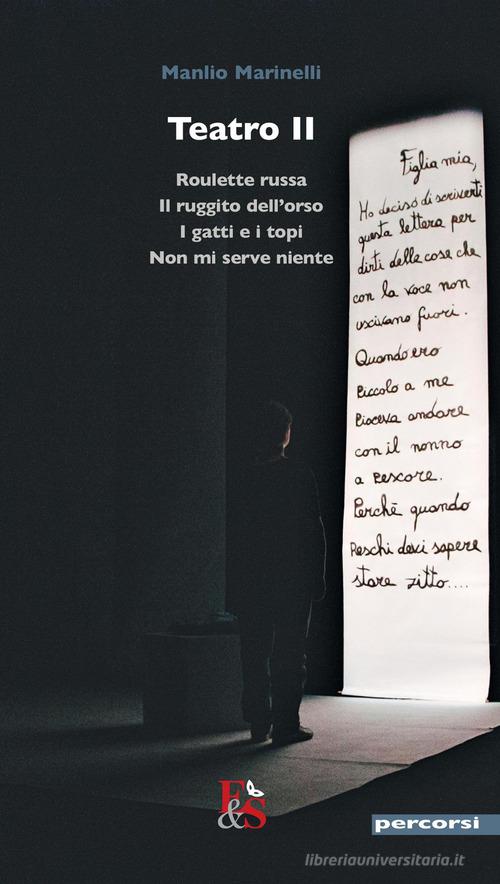 Manlio Marinelli
Teatro II
Roulette russa
Il ruggito dell'orso
I gatti e i topi
Non mi serve niente
Figlia mia,
Ho deciso di scriverti
questa lettera per
dirti delle cose che
con la voce non
uscivano fuori.
Quando ero
piccolo a me
piaceva andare
con il nonno
a pescare.
Perchè quando
peschi devi sapere
stare zitto....
E&S
percorsi
libreriauniversitaria.it